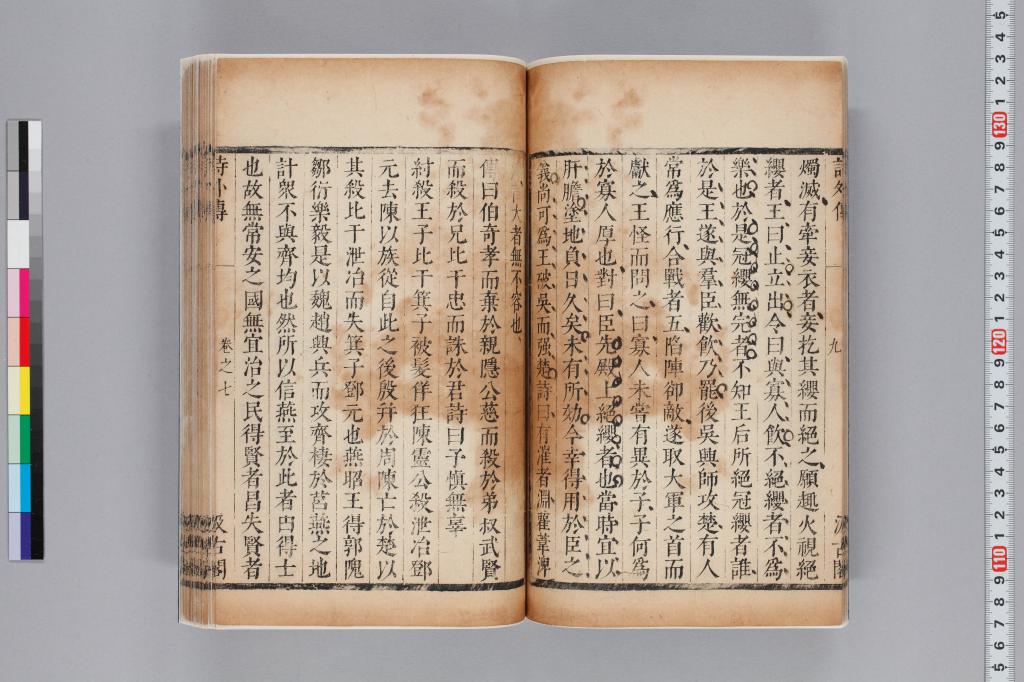 燭滅有牽妾衣者妾扢其纓而絕之願趣火視絕
纓者王曰止立出令曰與寡人飲不絕纓者不爲
樂也於是冠纓無完者不知王后所絕冠纓者誰
於是王遂與羣臣歡飲乃罷後吳興師攻楚有人
常爲應行合戰者五陷陣卻敵遂取大軍之首而
獻之王怪而問之曰寡人未嘗有異於子子何爲
於寡人厚也對曰臣先殿上絕纓者也當時宜以
肝膽塗地負日久矣未有所効今幸得用於臣之
義尚可爲王破吳而强楚詩曰有漼者淵雚葦渒
大者無不容也
傳曰伯奇孝而棄於親隱公慈而殺於弟叔武賢
而殺於兄比干忠而誅於君詩曰予愼無辜
紂殺王子比干箕子被髮佯狂陳靈公殺泄冶鄧
元去陳以族從自此之後殷并於周陳亡於楚以
其殺比干泄冶而失箕子鄧元也燕昭王得郭隗
鄒衍樂毅是以魏趙興兵而攻齊棲於莒燕之地
計衆不與齊均也然所以信燕至於此者由得士
也故無常安之國無宜治之民得賢者昌失賢者
詩外傳
卷之七
汲古閣
九